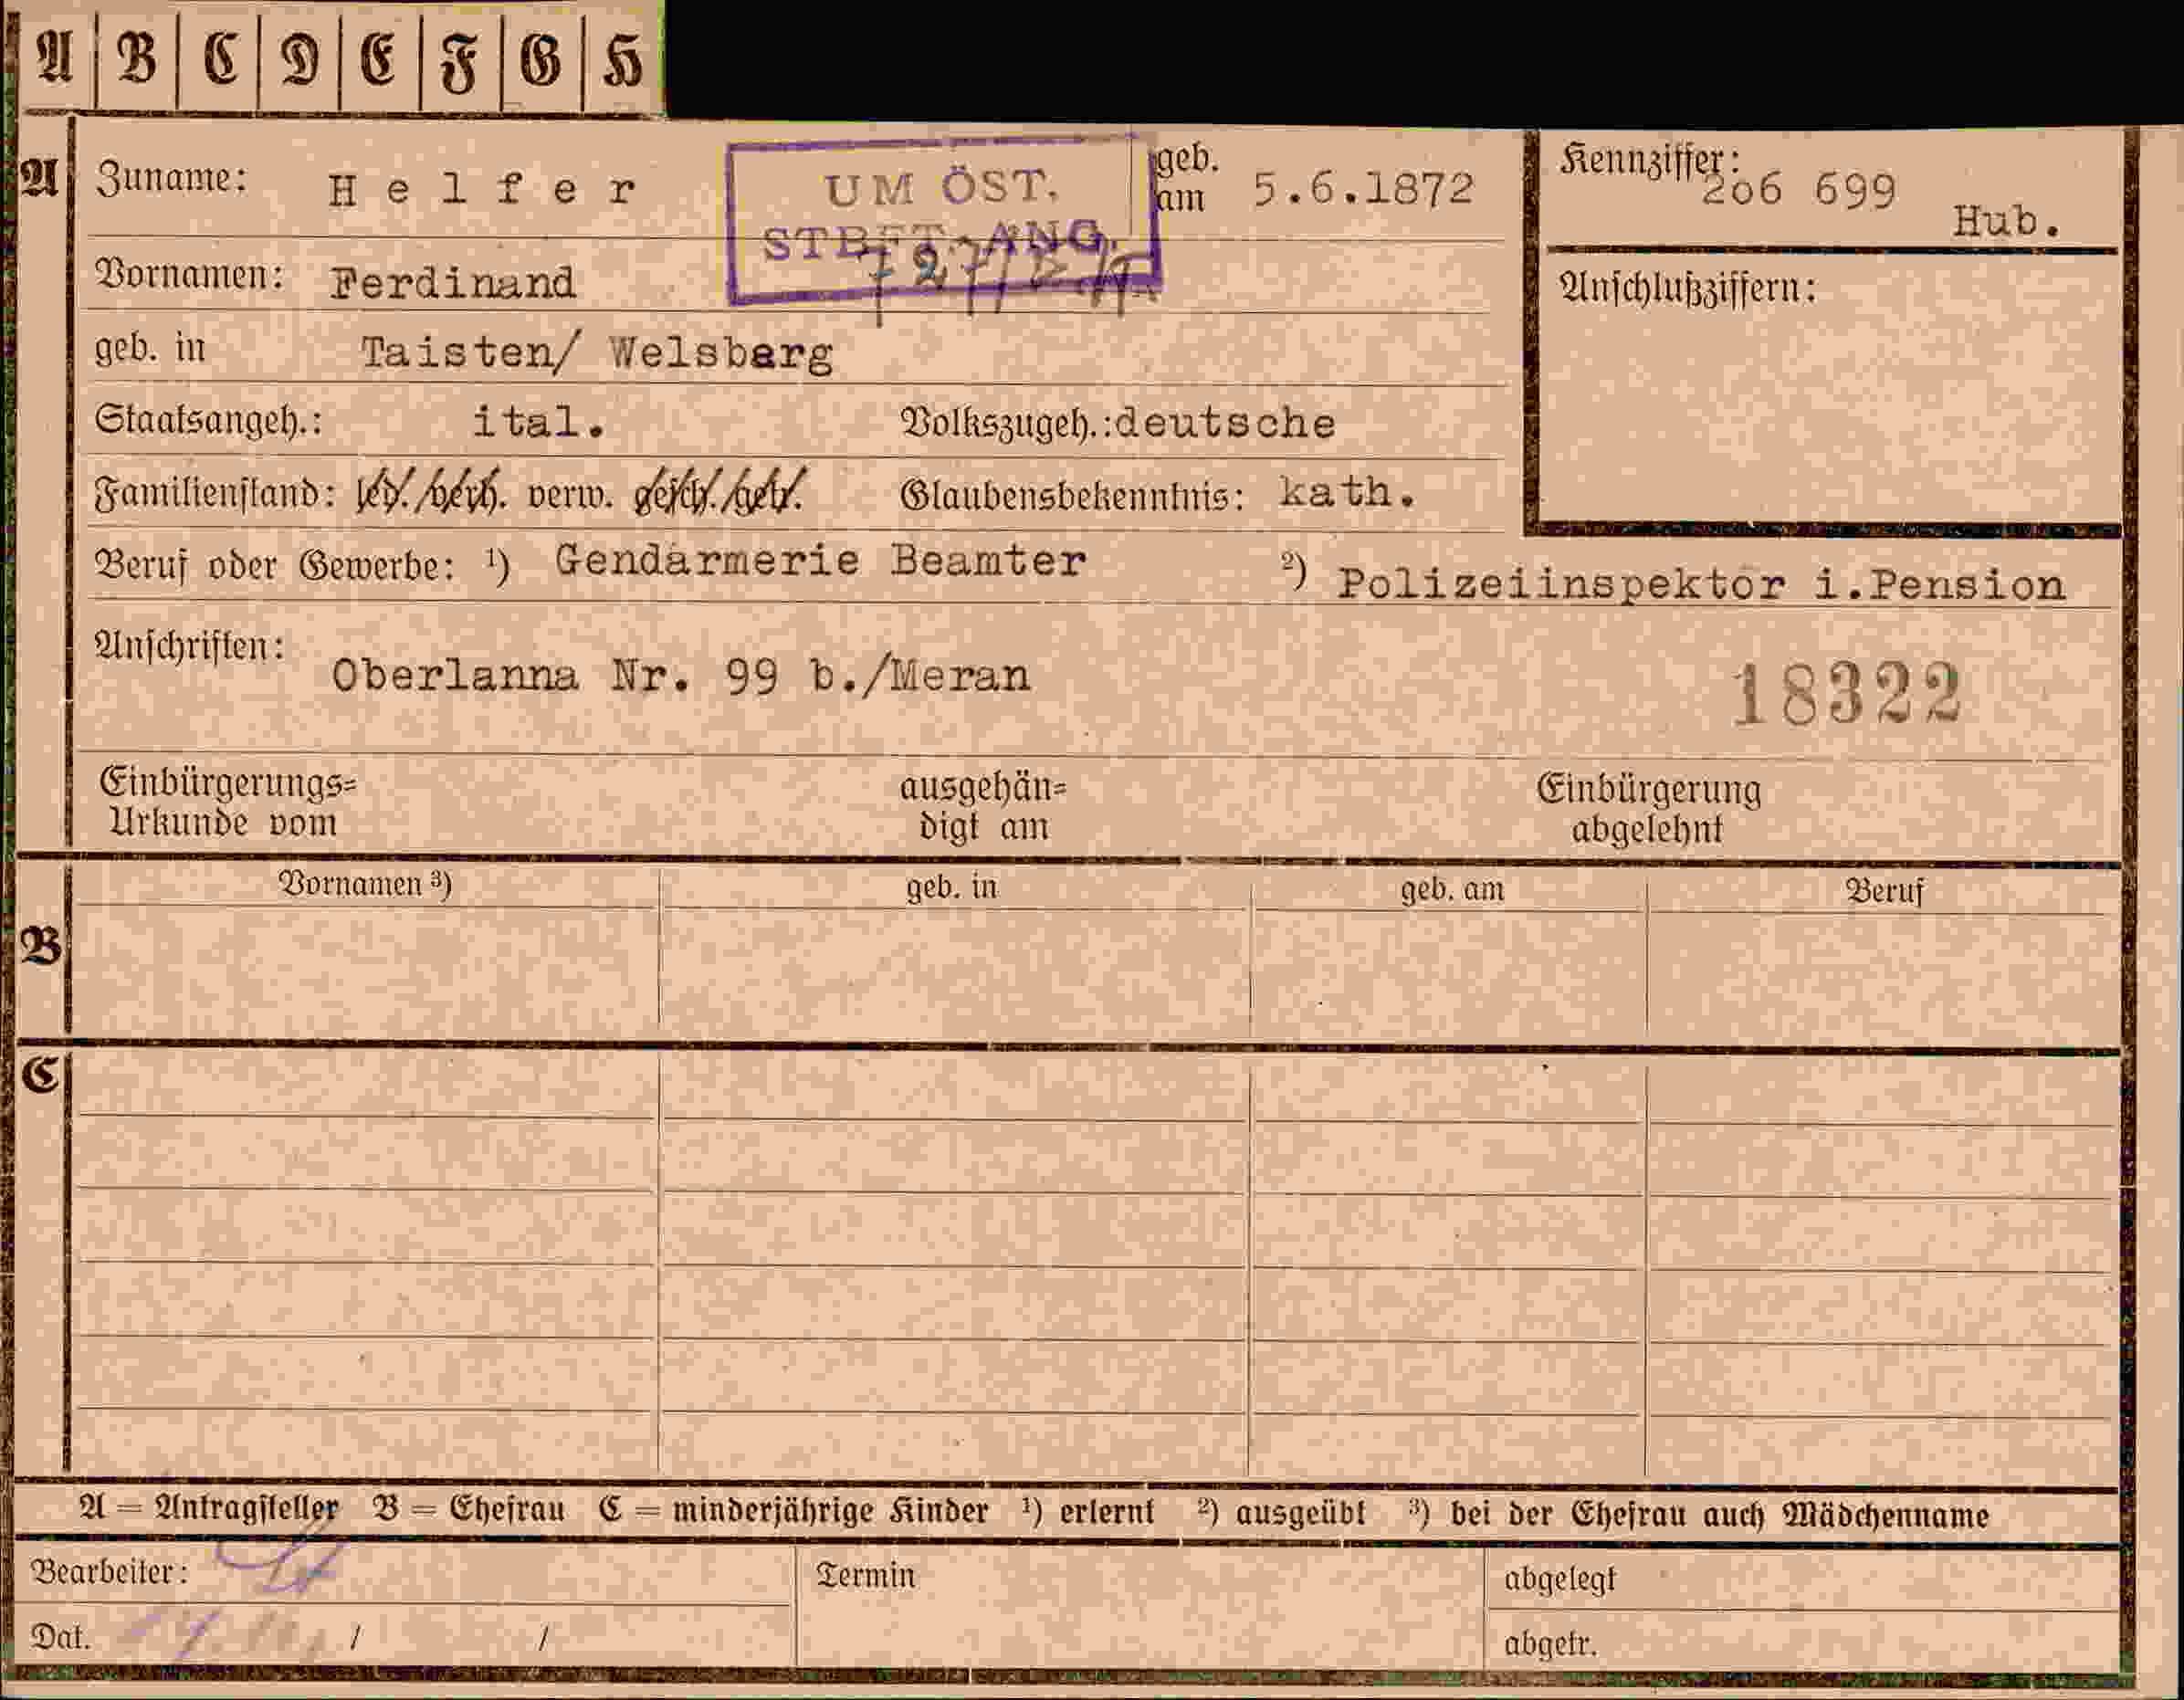 A B C D E F G H
A Zuname: Helfer geb. am 5.6.1872 Kennziffer: 206 699 Hub.
UM ÖST.
STBFT. ANG.
Vornamen: Ferdinand Anschlußziffern:
geb. in Taisten/ Welsberg
Staatsangeh.: ital. Volkszugeh.: deutsche
Familienstand: led./verh. verw. gesch./getr. Glaubensbekenntnis: kath.
Beruf oder Gewerbe: ¹) Gendarmerie Beamter ²) Polizeiinspektor i.Pension
Anschriften: Oberlanna Nr. 99 b./Meran
18322
Einbürgerungs= ausgehän= Einbürgerung
Urkunde vom digt am abgelehnt
Vornamen ³) geb. in geb. am Beruf
B
C
A = Antragsteller B = Ehefrau C = minderjährige Kinder ¹) erlernt ²) ausgeübt ³) bei der Ehefrau auch Mädchenname
Bearbeiter: Termin abgelegt
Dat. / / abgetr.